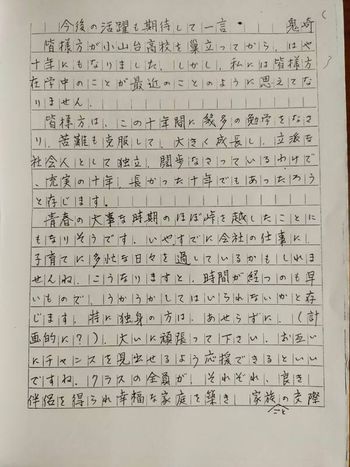 今後の活躍も期待して一言 鬼崎
皆様方が小山台高校を巣立ってから、はや
十年にもなりました。しかし、私には皆様方
在学中のことが最近のことのように思えてな
りません。
皆様方は、この十年間に幾多の勉学をなさ
り、苦難も克服して、大きく成長し、立派な
社会人として独立、闊歩なさっているわけで
、充実の十年、長かった十年でもあったろう
と存じます。
青春の大事な時期のほぼ峠を越したことに
もなりそうです。いやすでに会社の仕事に、
子育てに多忙な日々を過しているかもしれま
せんね。こうなりますと、時間が経つのも早
いもので、うかうかしてはいられないかと存
じます。特に独身の方は、あせらずに、(計
画的に?)、大いに頑張って下さい。お互い
にチャンスを見出せるよう応援できるといい
ですね。クラスの全員が、それぞれ、良き
伴侶を得られ幸福な家庭を築き、家族の交際